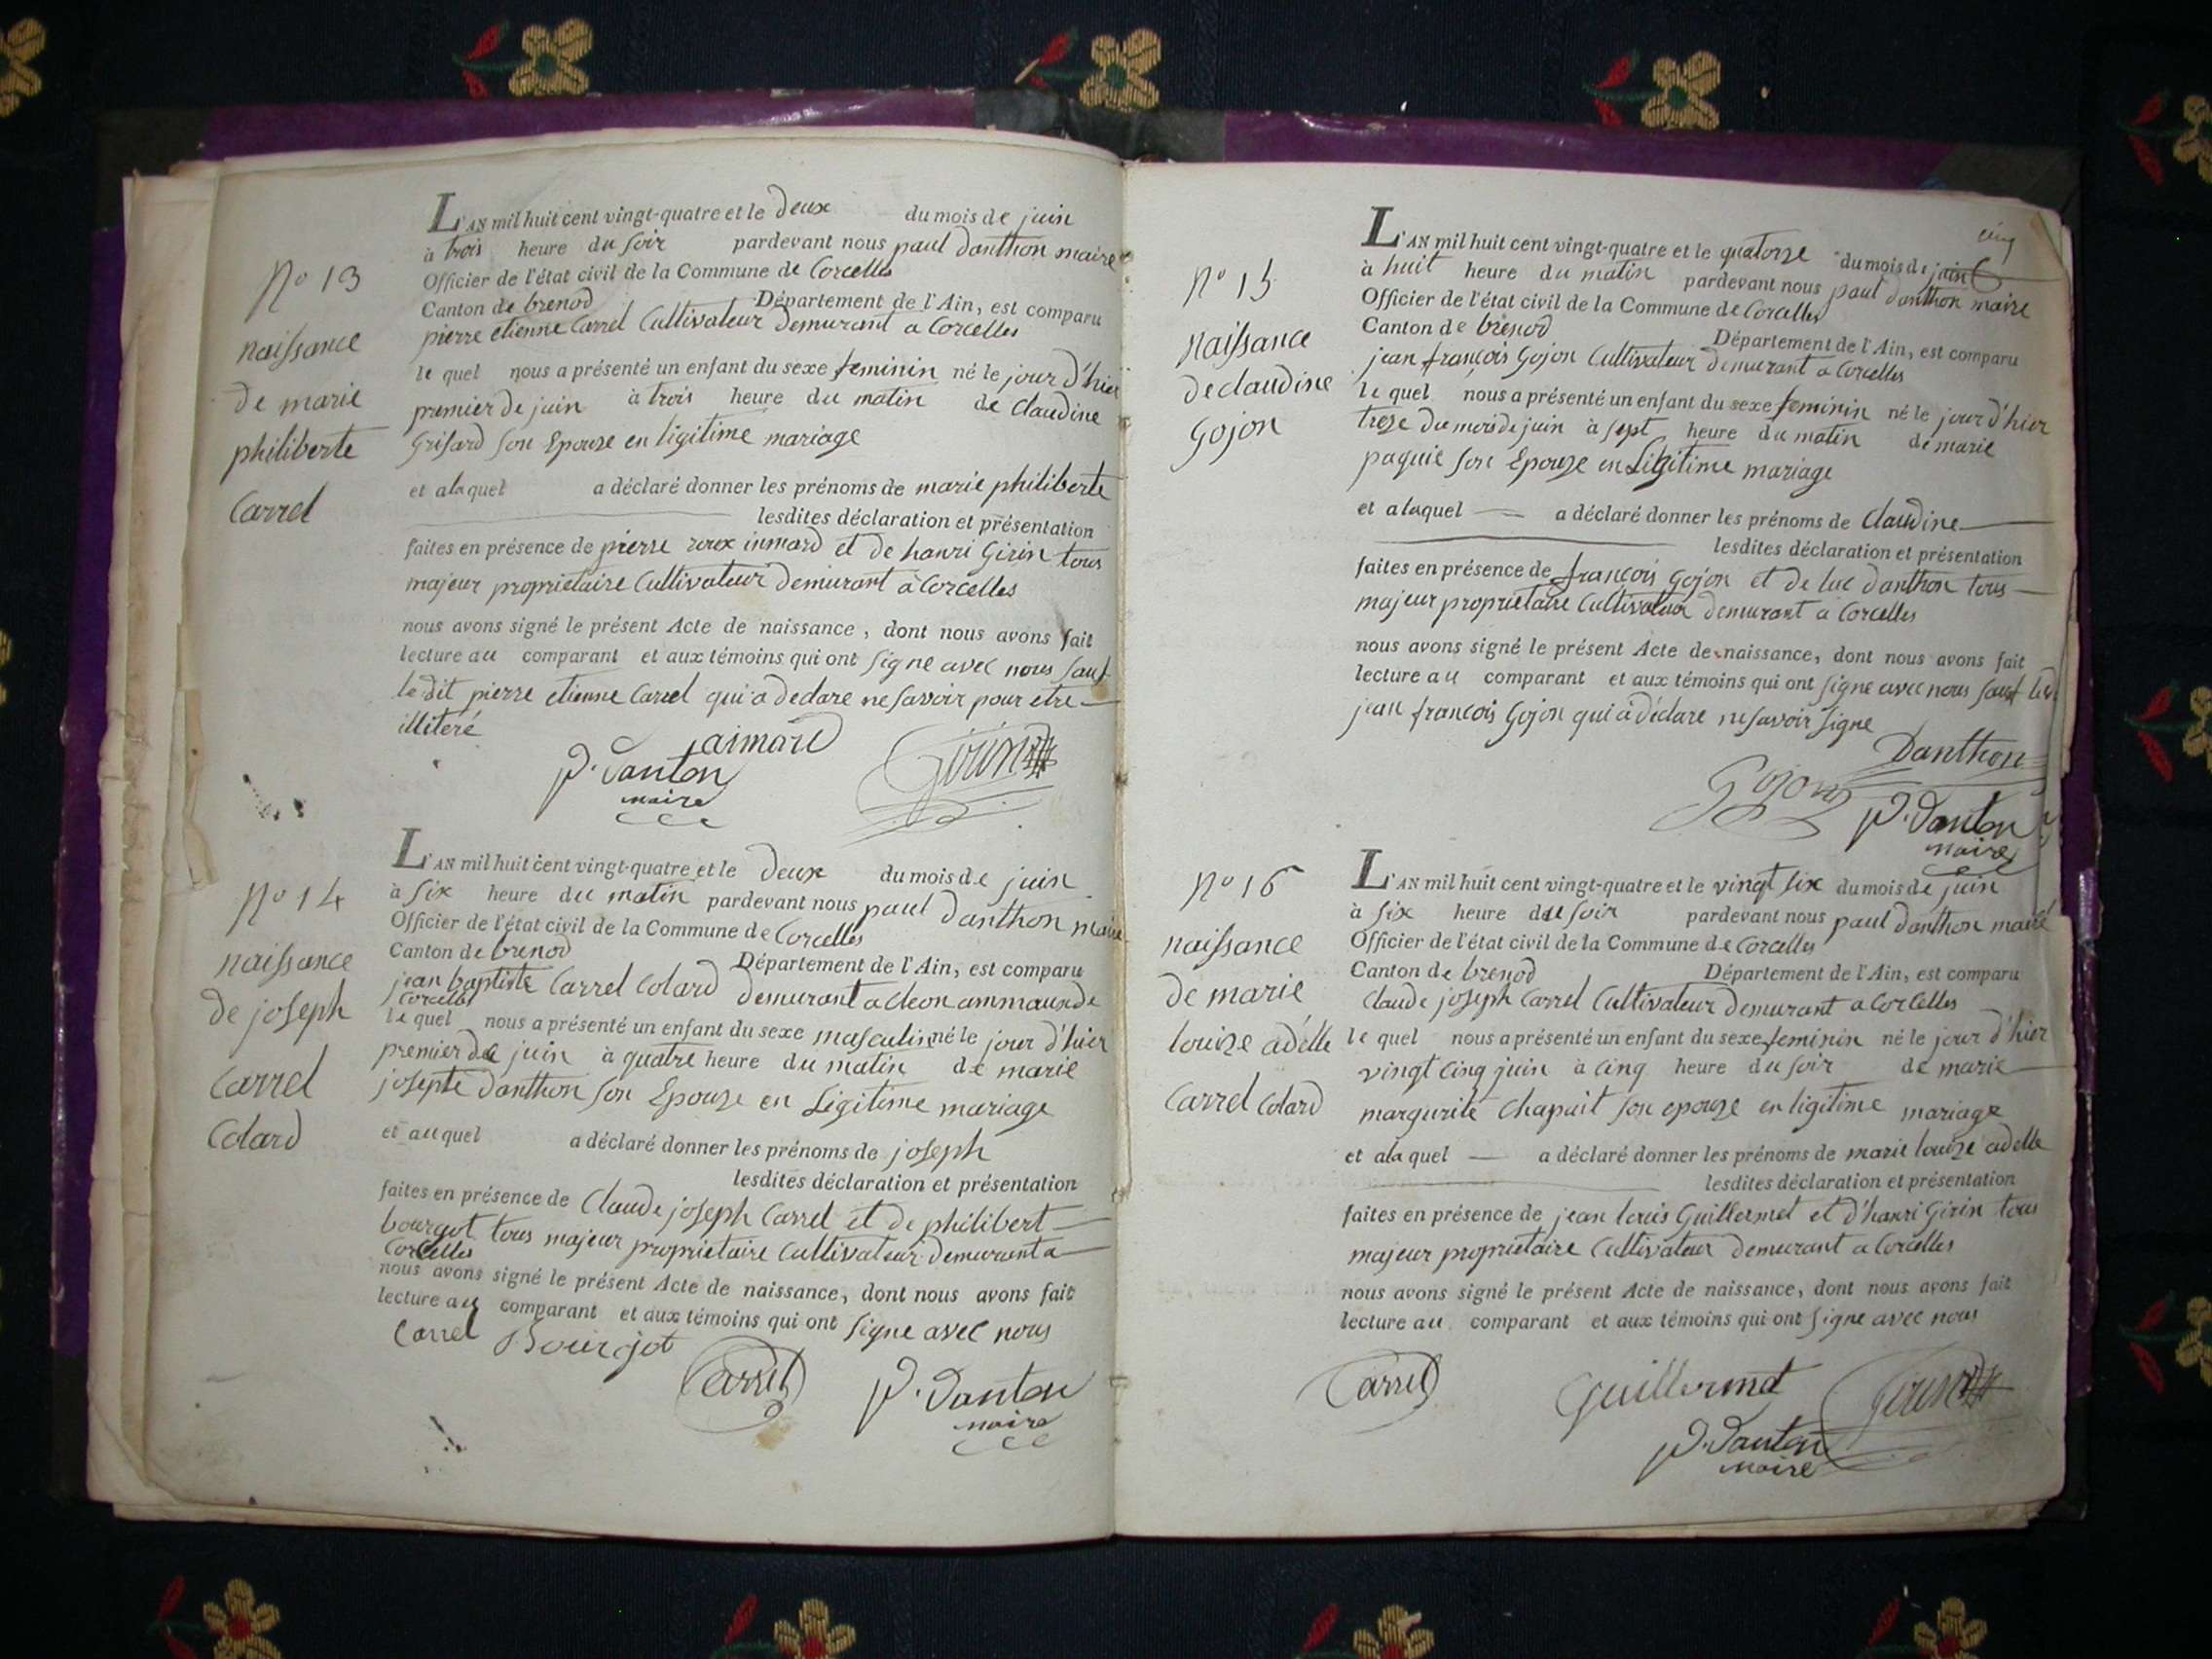 N° 13
naissance
de marie
philiberte
Carrel
L'AN mil huit cent vingt-quatre et le deux du mois de juin
à trois heure du soir pardevant nous paul danthon maire
Officier de l'état civil de la Commune de Corcelles
Canton de brenod Département de l'Ain, est comparu
pierre etienne Carrel Cultivateur demurant a Corcelles
le quel nous a présenté un enfant du sexe feminin né le jour d'hier
premier de juin à trois heure du matin de Claudine
Grisard son Epouze en ligitime mariage
et alaquel a déclaré donner les prénoms de marie philiberte
lesdites déclaration et présentation
faites en présence de pierre roux inmard et de hanri Girin tous
majeur proprietaire Cultivateur demurant à Corcelles
nous avons signé le présent Acte de naissance, dont nous avons fait
lecture au comparant et aux témoins qui ont signe avec nous sauf
le dit pierre etienne Carrel qui a declare ne savoir pour etre
illiteré
aimard
P. Danton Girin
maire
N° 14
naissance
de joseph
Carrel
Colard
L'AN mil huit cent vingt-quatre et le deux du mois de juin
à six heure du matin pardevant nous paul danthon maire
Officier de l'état civil de la Commune de Corcelles
Canton de brenod Département de l'Ain, est comparu
jean baptiste Carrel Colard demurant a cleon ammaunde
Corcelles
le quel nous a présenté un enfant du sexe masculin né le jour d'hier
premier de juin à quatre heure du matin de marie
josepte danthon son Epouze en Légitime mariage
et au quel a déclaré donner les prénoms de joseph
lesdites déclaration et présentation
faites en présence de Claude joseph Carrel et de philibert
bourgot tous majeur proprietaire Cultivateur demurant a
Corcelles
nous avons signé le présent Acte de naissance, dont nous avons fait
lecture au comparant et aux témoins qui ont signe avec nous
Carrel Bourgot
Carrel P. Danton
maire
cinq
N° 15
naissance
de claudine
Gojon
L'AN mil huit cent vingt-quatre et le quatorze du mois de juin
à huit heure du matin pardevant nous paul danthon maire
Officier de l'état civil de la Commune de Corcelles
Canton de brenod Département de l'Ain, est comparu
jean françois Gojon Cultivateur demurant a Corcelles
le quel nous a présenté un enfant du sexe feminin né le jour d'hier
treze du mois de juin à sept heure du matin de marie
paquie son Epouze en Ligitime mariage
et alaquel a déclaré donner les prénoms de Claudine
lesdites déclaration et présentation
faites en présence de françois Gojon et de luc danthon tous
majeur proprietaire Cultivateur demurant a Corcelles
nous avons signé le présent Acte de naissance, dont nous avons fait
lecture au comparant et aux témoins qui ont signe avec nous sauf led
jean françois Gojon qui a déclare ne savoir signe
Danthon
Gojon P. Danton
maire
N° 16
naissance
de marie
louize adelle
Carrel Colard
L'AN mil huit cent vingt-quatre et le vingt six du mois de juin
à six heure du soir pardevant nous paul danthon maire
Officier de l'état civil de la Commune de Corcelles
Canton de brenod Département de l'Ain, est comparu
Claude joseph Carrel Cultivateur demurant a Corcelles
le quel nous a présenté un enfant du sexe feminin né le jour d'hier
vingt cinq juin à cinq heure du soir de marie
margurite Chapuit son epouze en ligitime mariage
et alaquel a déclaré donner les prénoms de marie louize adelle
lesdites déclaration et présentation
faites en présence de jean louis Guillermet et d'hanri Girin tous
majeur proprietaire Cultivateur demurant a Corcelles
nous avons signé le présent Acte de naissance, dont nous avons fait
lecture au comparant et aux témoins qui ont signe avec nous
Carrel Guillermet Girin
P. Danton
maire